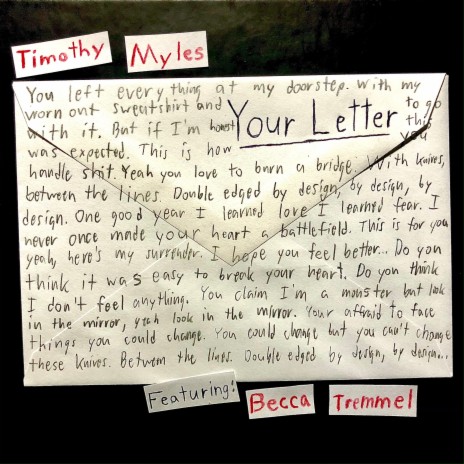 Timothy Myles
You left everything at my doorstep. With my
worn out sweatshirt and to go
Your Letter
with it. But if I'm honest this
was expected. This is how you
handle shit. Yeah you love to burn a bridge. With knives,
between the lines. Double edged by design, by design, by
design. One good year I learned love I learned fear. I
never once made your heart a battlefield. This is for you
yeah, here's my surrender. I hope you feel better... Do you
think it was easy to break your heart. Do you think
I don't feel anything. You claim I'm a monster but look
in the mirror, yeah look in the mirror. Your afraid to face
things you could change. You could change but you can't change
these knives. Between the lines. Double edged by design, by design...
Featuring:
Becca Tremmel